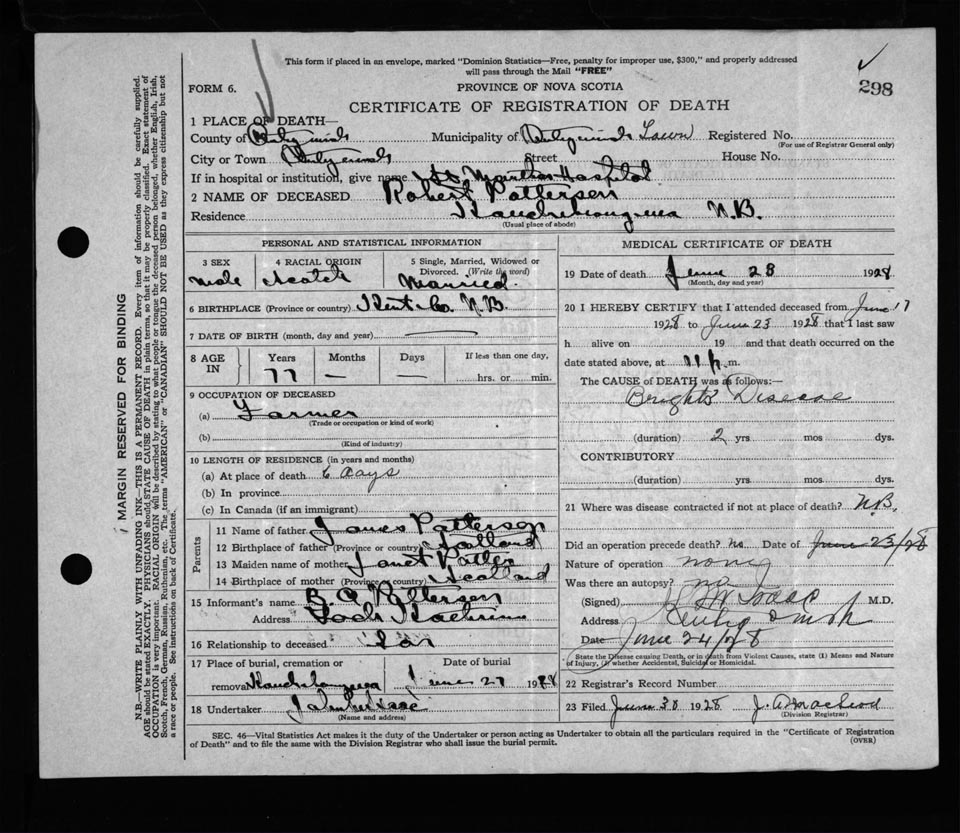 This form if placed in an envelope, marked "Dominion Statistics—Free, penalty for improper use, $300," and properly addressed
will pass through the Mail "FREE"
298
FORM 6.
PROVINCE OF NOVA SCOTIA
CERTIFICATE OF REGISTRATION OF DEATH
1 PLACE OF DEATH—
County of Antigonish Municipality of Antigonish Town Registered No.
(For use of Registrar General only)
City or Town Antigonish Street House No.
If in hospital or institution, give name St Marthas Hospital
2 NAME OF DECEASED Robert Patterson
Residence N.B.
(Usual place of abode)
PERSONAL AND STATISTICAL INFORMATION
3 SEX 4 RACIAL ORIGIN 5 Single, Married, Widowed or
Divorced. (Write the word)
male Scotch Married.
6 BIRTHPLACE (Province or country) Kent Co. N.B.
7 DATE OF BIRTH (month, day and year)
8 AGE IN Years Months Days If less than one day,
77 — — hrs. or min.
9 OCCUPATION OF DECEASED
(a) Farmer
(Trade or occupation or kind of work)
(b)
(Kind of industry)
10 LENGTH OF RESIDENCE (in years and months)
(a) At place of death 6 days
(b) In province
(c) In Canada (if an immigrant)
Parents
11 Name of father James Patterson
12 Birthplace of father (Province or country) Scotland
13 Maiden name of mother Janet
14 Birthplace of mother (Province or country) Scotland
15 Informant's name Patterson
Address Loch
16 Relationship to deceased Son
17 Place of burial, cremation or Date of burial
removal June 27 1928
18 Undertaker John
(Name and address)
MEDICAL CERTIFICATE OF DEATH
19 Date of death June 23 1928
(Month, day and year)
20 I HEREBY CERTIFY that I attended deceased from June 17
1928 to June 23 1928 that I last saw
h alive on 19 and that death occurred on the
date stated above, at 11 p. m.
The CAUSE OF DEATH was as follows:—
Brights Disease
(duration) 2 yrs. mos dys.
CONTRIBUTORY
(duration) yrs. mos. dys.
21 Where was disease contracted if not at place of death? N.B.
Did an operation precede death? no Date of June 23/28
Nature of operation none
Was there an autopsy? no
(Signed) M.D.
Address Antigonish
Date June 24/28
State the Disease causing Death, or in death from Violent Causes, state (1) Means and Nature
of Injury, (2) whether Accidental, Suicidal or Homicidal.
22 Registrar's Record Number
23 Filed June 30 1928 J. A. Macleod
(Division Registrar)
SEC. 46—Vital Statistics Act makes it the duty of the Undertaker or person acting as Undertaker to obtain all the particulars required in the "Certificate of Registration
of Death" and to file the same with the Division Registrar who shall issue the burial permit.
(OVER)
MARGIN RESERVED FOR BINDING
N.B.—WRITE PLAINLY WITH UNFADING INK—THIS IS A PERMANENT RECORD. Every item of information should be carefully supplied.
AGE should be stated EXACTLY. PHYSICIANS should STATE CAUSE OF DEATH in plain terms, so that it may be properly classified. Exact statement of
OCCUPATION is very important. RACIAL ORIGIN will be described by stating to what people or tongue the deceased person belonged, whether English, Irish,
Scotch, French, German, Russian, Ruthenian, etc. The terms "AMERICAN" or "CANADIAN" SHOULD NOT BE USED as they express citizenship but not
a race or people. See instructions on back of Certificate.